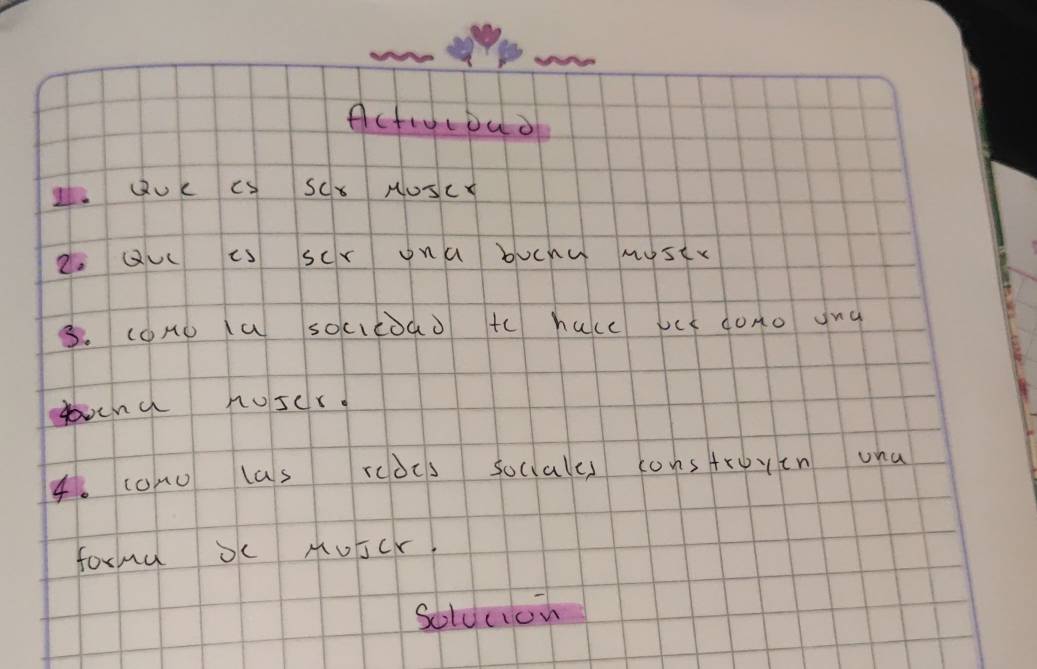 Actividad
1. Que es ser Mujer
2. Que es ser una buena mujer
3. como la sociedad te hace ver como una
buena mujer.
4. como las redes sociales construyen una
forma de Mujer.
Solución